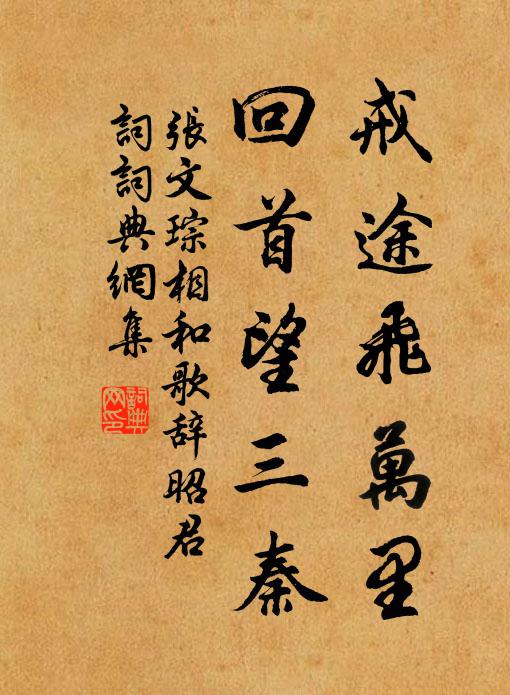 戒途飛萬里
回首望三秦
張文琮相和歌辞昭君
詞詞典網集
詞典网印